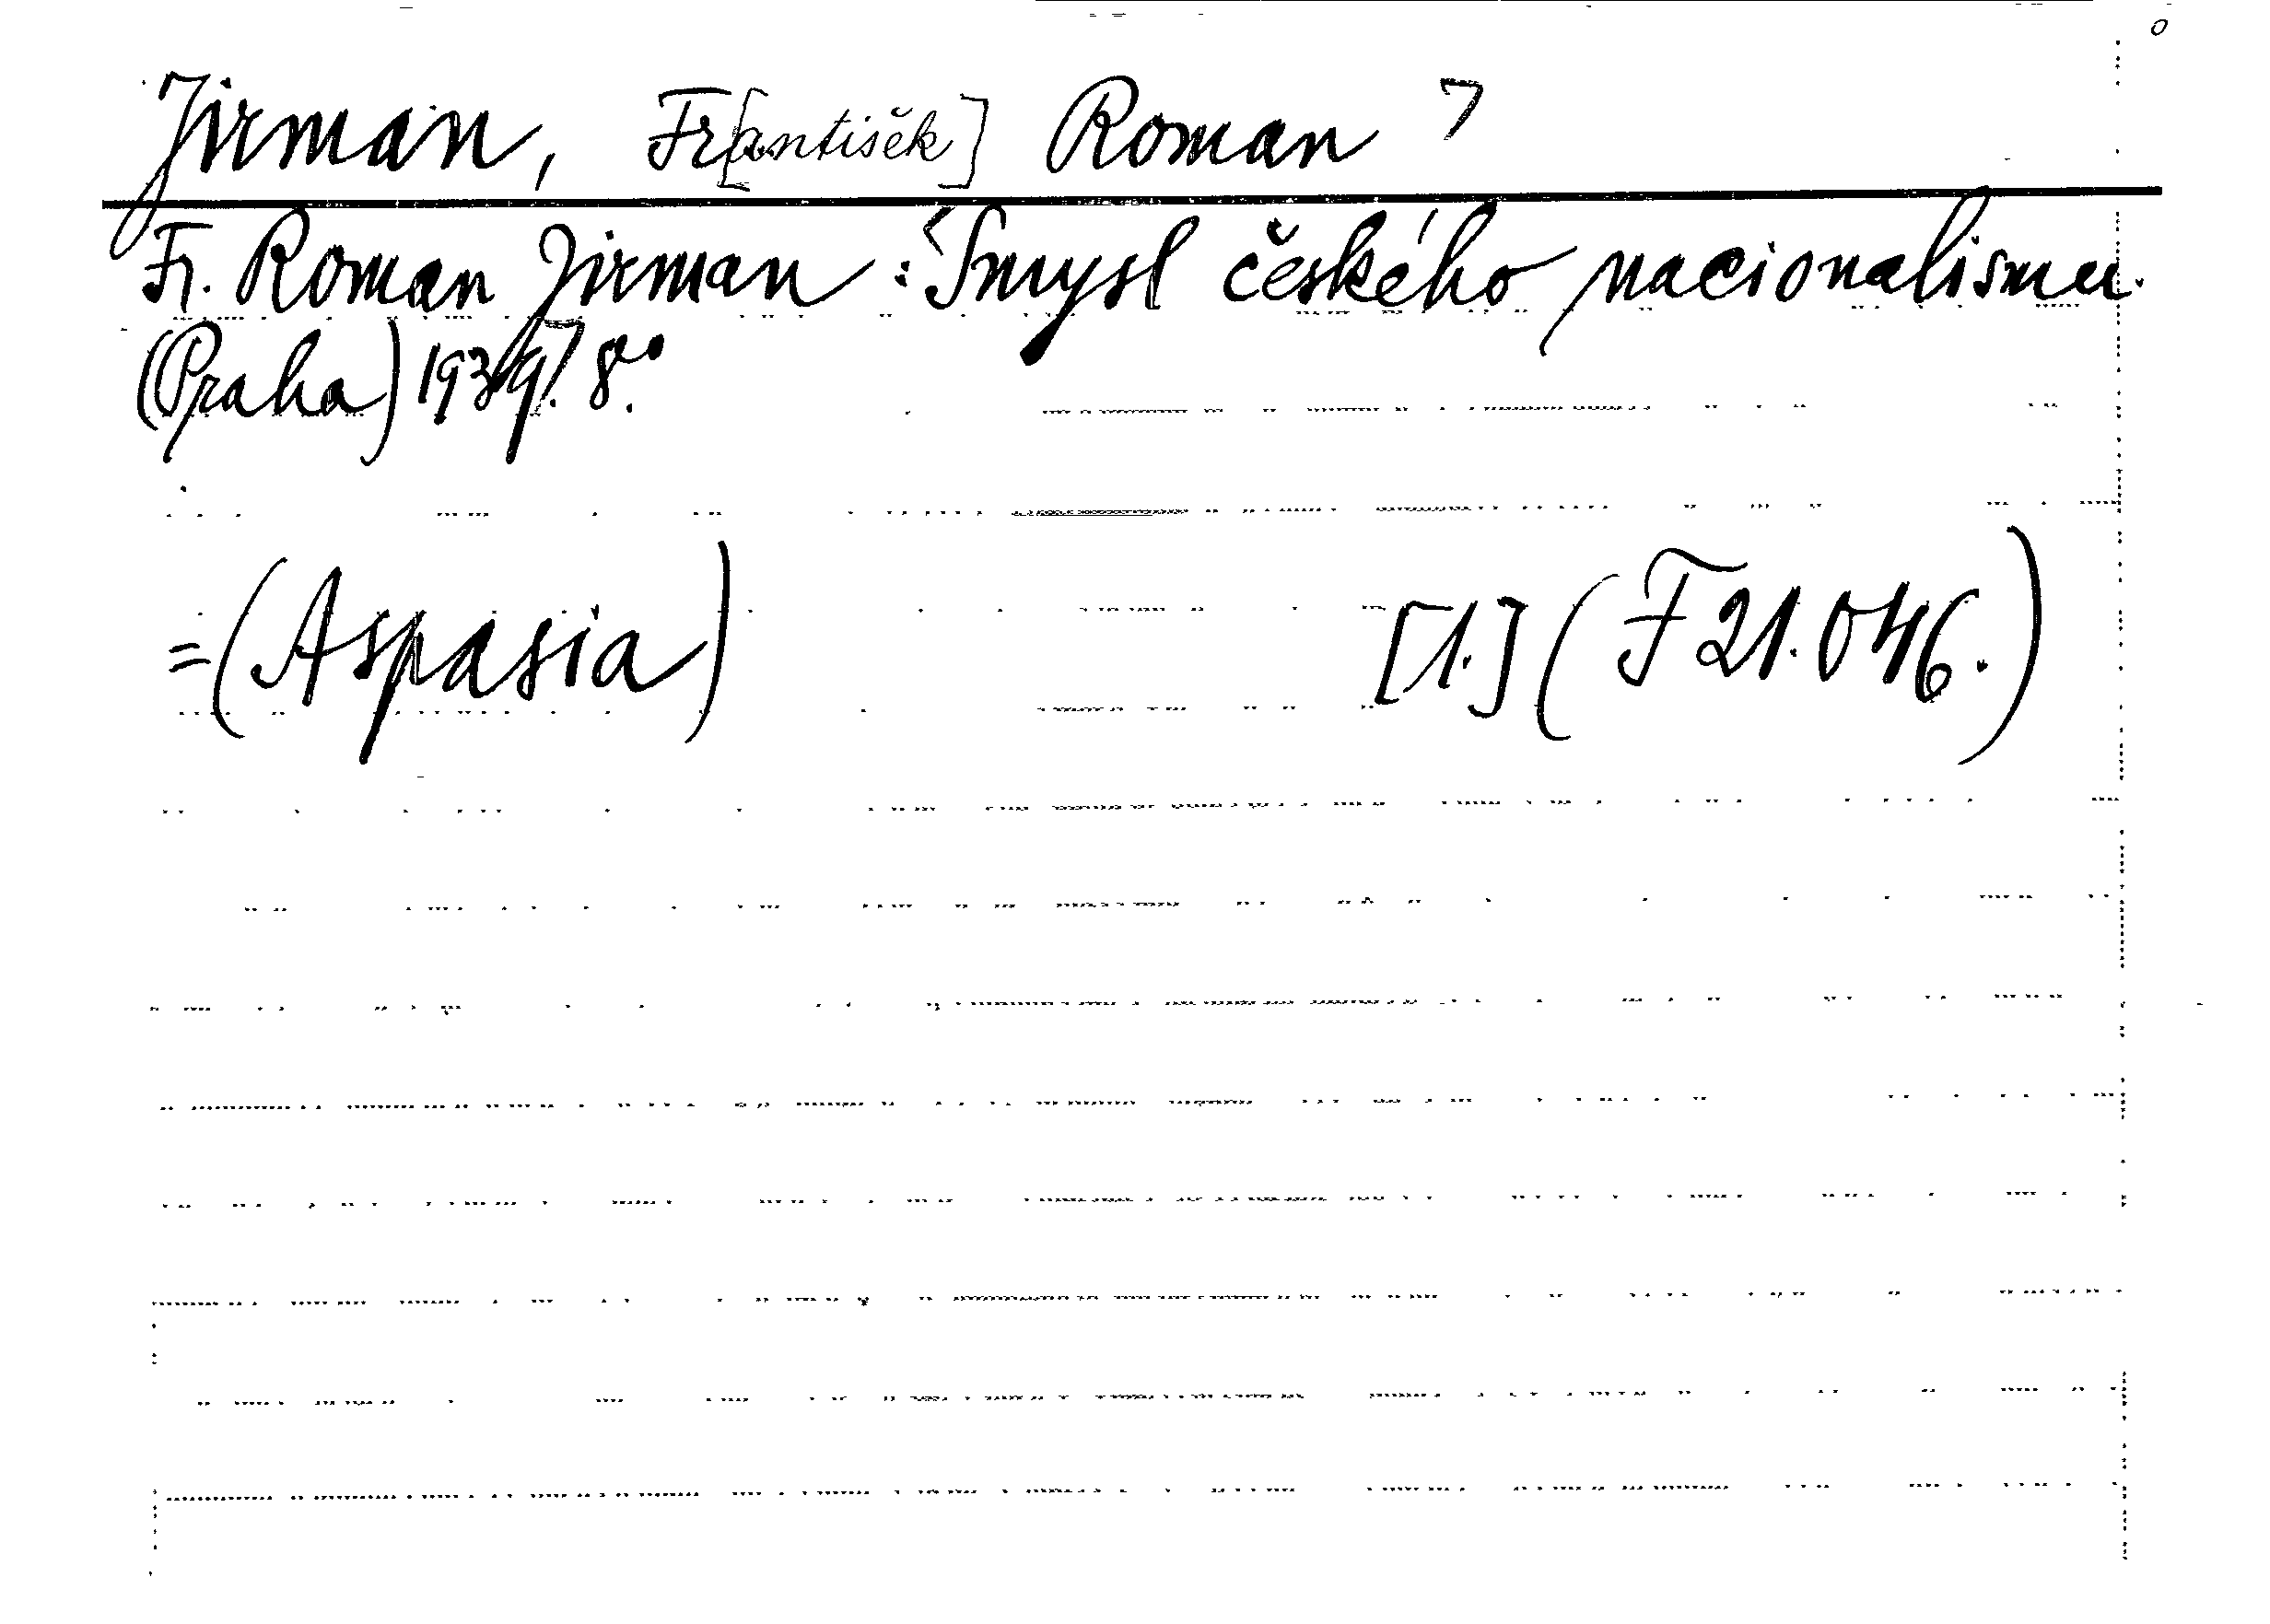 Jirman, Fr[antišek] Roman 7
Fr. Roman Jirman: Smysl českého nacionalismu.
(Praha) 1939. 8°.
=(Aspasia) [1.] (F 21.046.)